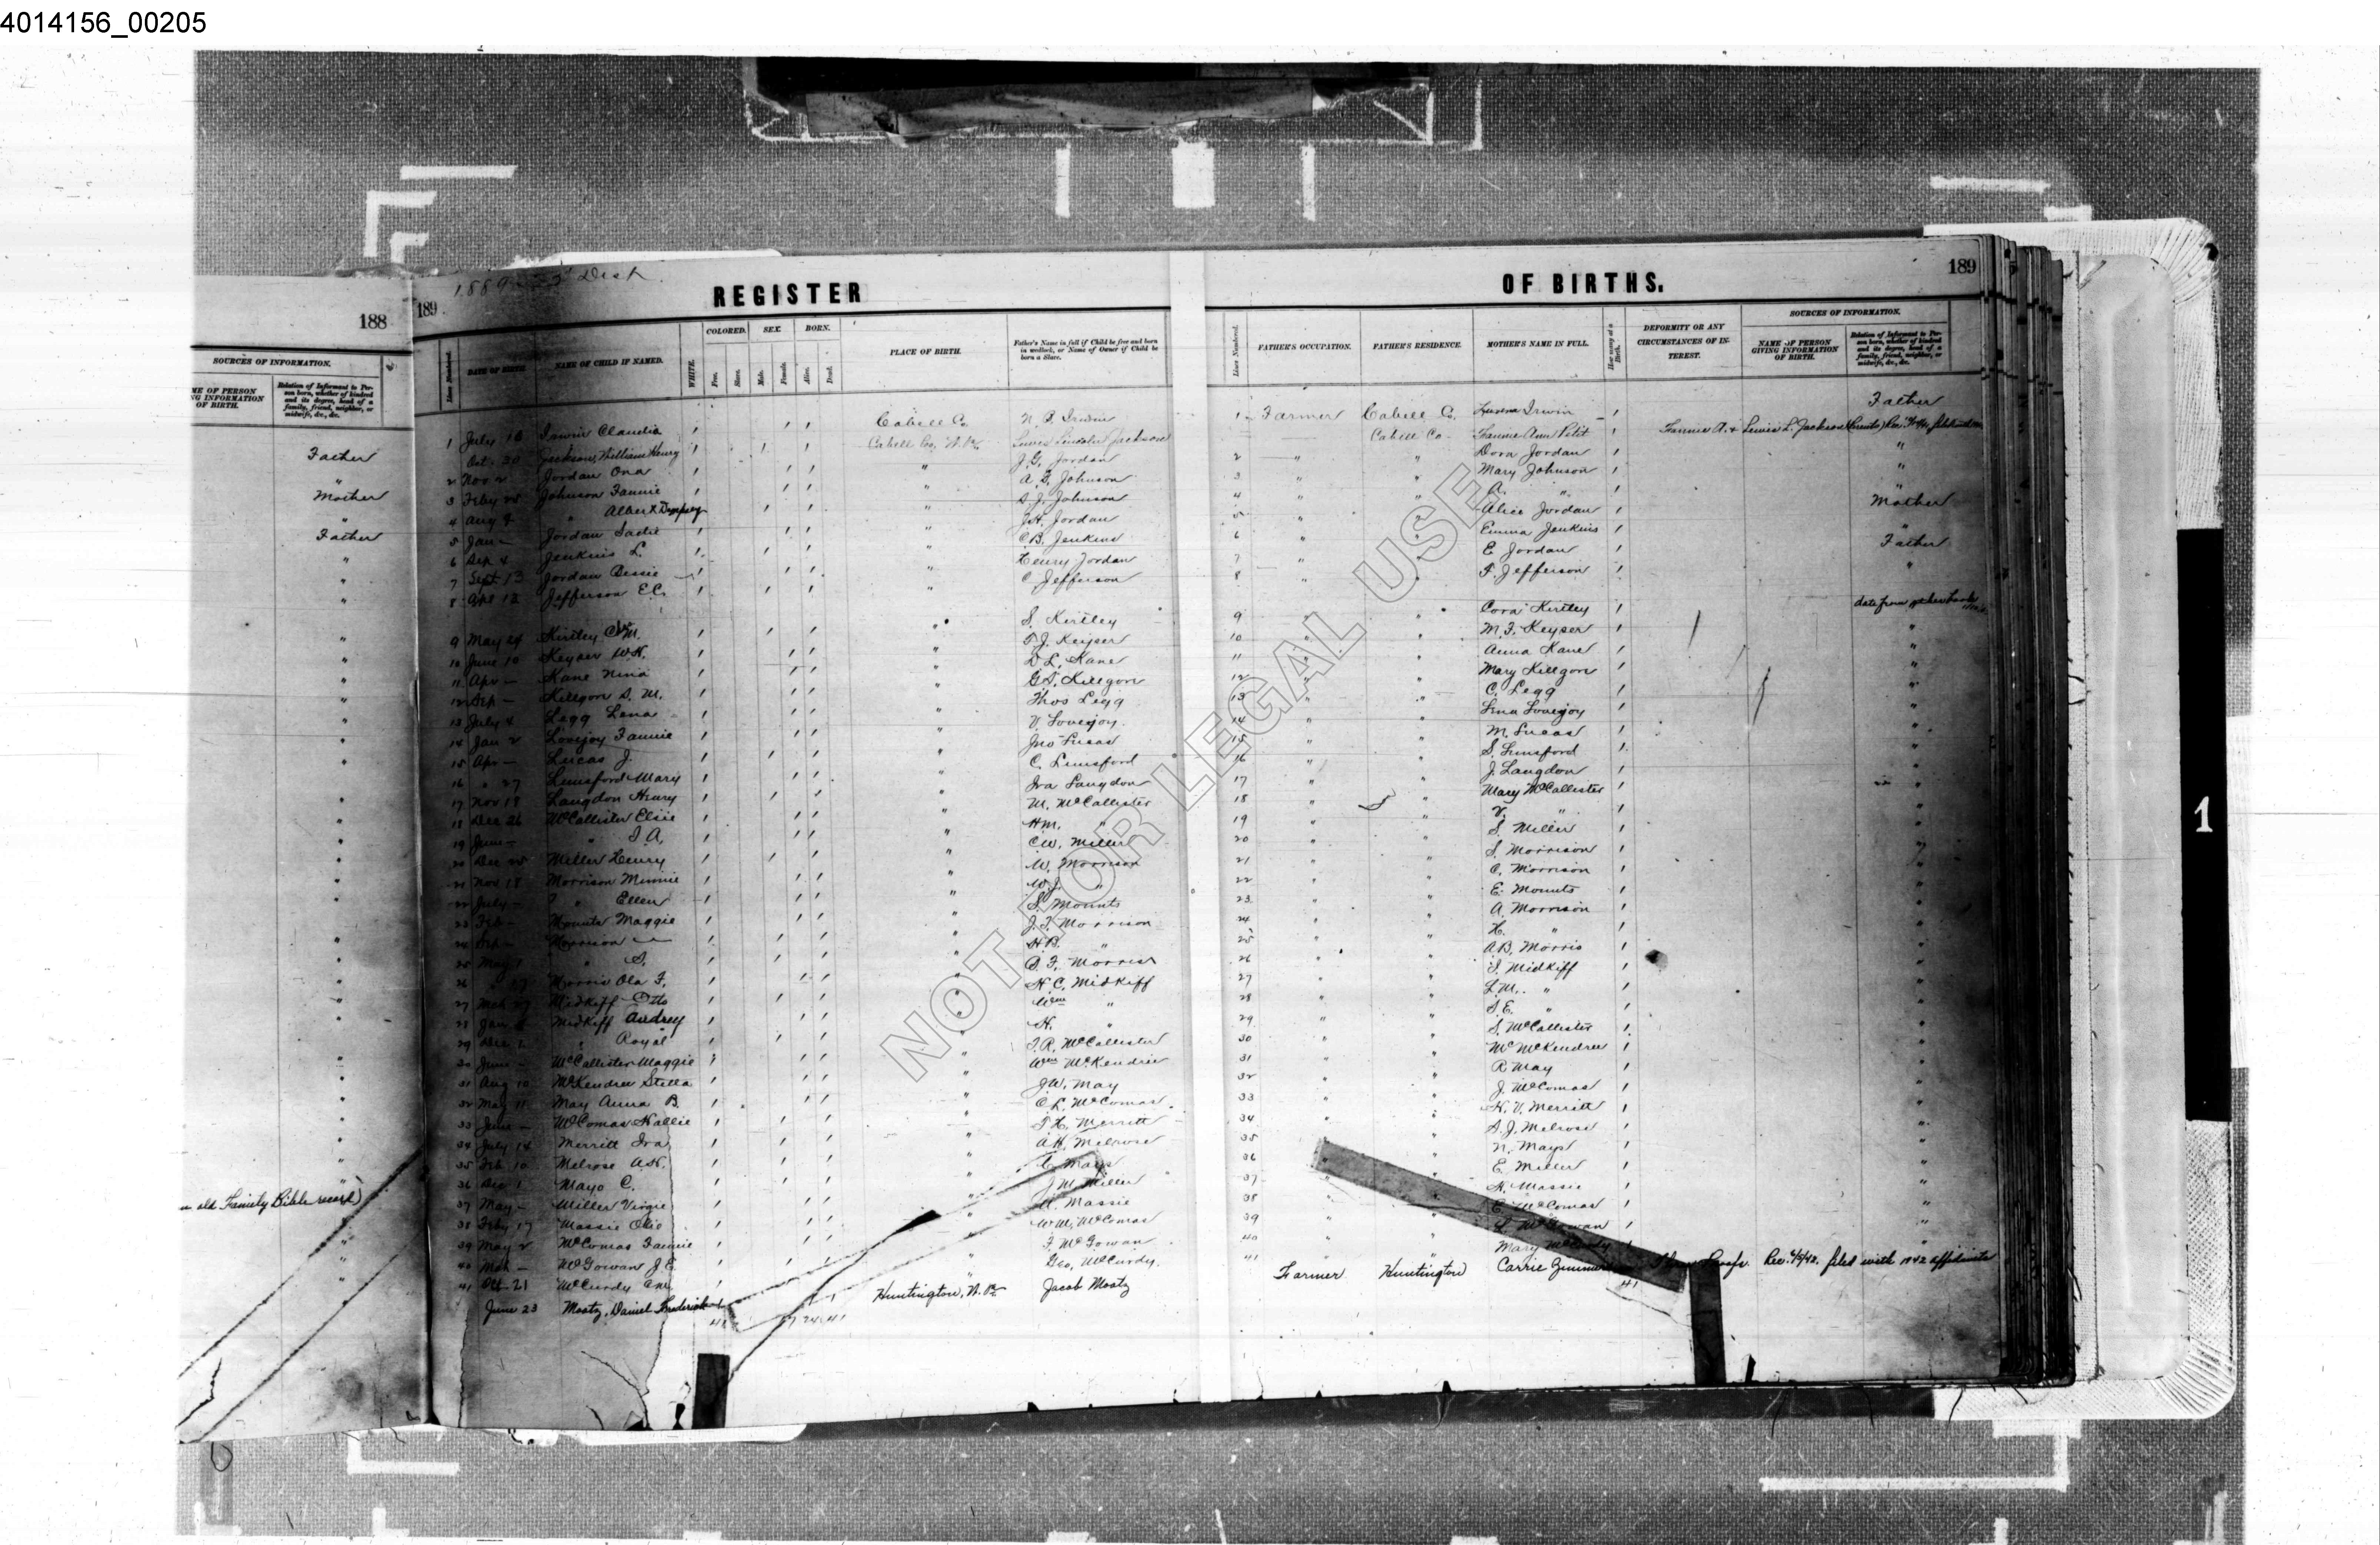 4014156_00205
188
SOURCES OF INFORMATION.
ME OF PERSON
NG INFORMATION
OF BIRTH.
Relation of Informant to Per-
son born, whether of kindred
and its degree, head of a
family, friend, neighbor, or
midwife, &c., &c.
Father
"
Mother
"
Father
old Family Bible record)
1889 Dist
189
REGISTER
OF BIRTHS.
189
Lines Numbered. DATE OF BIRTH NAME OF CHILD IF NAMED. WHITE. COLORED. Free. Slave. SEX. Male. Female. BORN. Alive. Dead. PLACE OF BIRTH. Father's Name in full if Child be free and born in wedlock, or Name of Owner if Child be born a Slave.
Lines Numbered. FATHER'S OCCUPATION. FATHER'S RESIDENCE. MOTHER'S NAME IN FULL. How many at a Birth. DEFORMITY OR ANY CIRCUMSTANCES OF INTEREST. SOURCES OF INFORMATION. NAME OF PERSON GIVING INFORMATION OF BIRTH. Relation of Informant to Person born, whether of kindred and its degree, head of a family, friend, neighbor, or midwife, &c., &c.
1 July Irwin Claudia Cabell Co. Irwin 1 Farmer Cabell Co. Irwin 1 Father
Oct. 30 Jackson, William Henry Cabell Co., W. Va. Lewis Lincoln Jackson Cabell Co Fannie Ann Petit 1 Fannie A. & Lewis L. Jackson (Parents)
2 Nov 2 Jordan Ona " J. G. Jordan 2 " " Dora Jordan 1 "
3 Feby 25 Johnson Fannie " A. G. Johnson 3 " " Mary Johnson 1 "
4 Aug 9 " Albert Dempsey " S. J. Johnson 4 " " C. " 1 Mother
5 Jan — Jordan Sadie " J. H. Jordan 5 " " Alice Jordan 1 "
6 Sep 4 Jenkins L. " C. B. Jenkins 6 " " Emma Jenkins 1 Father
7 Sept 13 Jordan Bessie " Henry Jordan 7 " " E Jordan 1 "
8 Apl 12 Jefferson E.C. " C Jefferson 8 " " F. Jefferson 1
9 May 24 Kirtley C.M. " S. Kirtley 9 " Cora Kirtley 1 date from
10 June 10 Keyser W.H. " T. J. Keyser 10 " " M. F. Keyser 1 "
11 Apr — Kane Nina " D L. Kane 11 " " Anna Kane 1 "
12 Sep — Killgore S. M. " G. S. Killgore 12 " " Mary Killgore 1 "
13 July 4 Legg Lena " Thos Legg 13 " " C. Legg 1 "
14 Jan 2 Lovejoy Fannie " V Lovejoy 14 " " Lena Lovejoy 1 "
15 Apr — Lucas J. " Jno Lucas 15 " " M. Lucas 1 "
16 " 27 Lunsford Mary " C. Lunsford 16 " " S. Lunsford 1 "
17 Nov 18 Langdon Henry " Ira Langdon 17 " " J. Langdon 1 "
18 Dec 26 McCallister Elsie " M. McCallister 18 " " Mary McCallister 1 "
19 June — " S. A. " H.M. " 19 " " V. " 1 "
20 Dec 25 Miller Henry " C.W. Miller 20 " " S. Miller 1 "
21 Nov 18 Morrison Minnie " W. Morrison 21 " " S. Morrison 1 "
22 July — " Ellen " W. J. " 22 " " C. Morrison 1 "
23 Feb — Mounts Maggie " S. Mounts 23 " " E. Mounts 1 "
24 Sep — Morrison — " J. F. Morrison 24 " " A. Morrison 1 "
25 May 1 " S. " H B. " 25 " " H. " 1 "
26 " 17 Morris Ola F. " B. F. Morris 26 " " A.B. Morris 1 "
27 Mch 27 Midkiff Otto " H. C. Midkiff 27 " " S. Midkiff 1 "
28 Jan Midkiff Audrey " Wm " 28 " " L.M. " 1 "
29 Dec 2 " Royal " H. " 29 " " S.E. " 1 "
30 June — McCallister Maggie " J. R. McCallister 30 " " S. McCallister 1 "
31 Aug 10 McKendree Stella " Wm McKendree 31 " " Mc McKendree 1 "
32 May 11 May Anna B. " J. W. May 32 " " R May 1 "
33 June — McComas Hallie " C. L. McComas 33 " " J. McComas 1 "
34 July 14 Merritt Ira " T. H. Merritt 34 " " H. V. Merritt 1 "
35 Feb 10 Melrose A.H. " A H. Melrose 35 " " S. J. Melrose 1 "
36 Dec 1 Mayo C. " Mays 36 " " N. Mays 1 "
37 May — Miller Virgie " J M Miller 37 " " E. Miller 1 "
38 Feby 17 Massie Okie " Massie 38 " " H. Massie 1 "
39 May 2 McComas Fannie " W M. McComas 39 " " E McComas 1 "
40 Mch — McGowan J. E. " F. McGowan 40 " " McGowan 1 "
41 Oct 21 McCurdy " Geo. McCurdy 41 " " Mary McCurdy 1 "
June 23 Mootz, Daniel Frederick Huntington, W. Va Jacob Mootz Farmer Huntington Carrie Rec. filed with 1942 affidavits
41 17 24 41
41
NOT FOR LEGAL USE
1